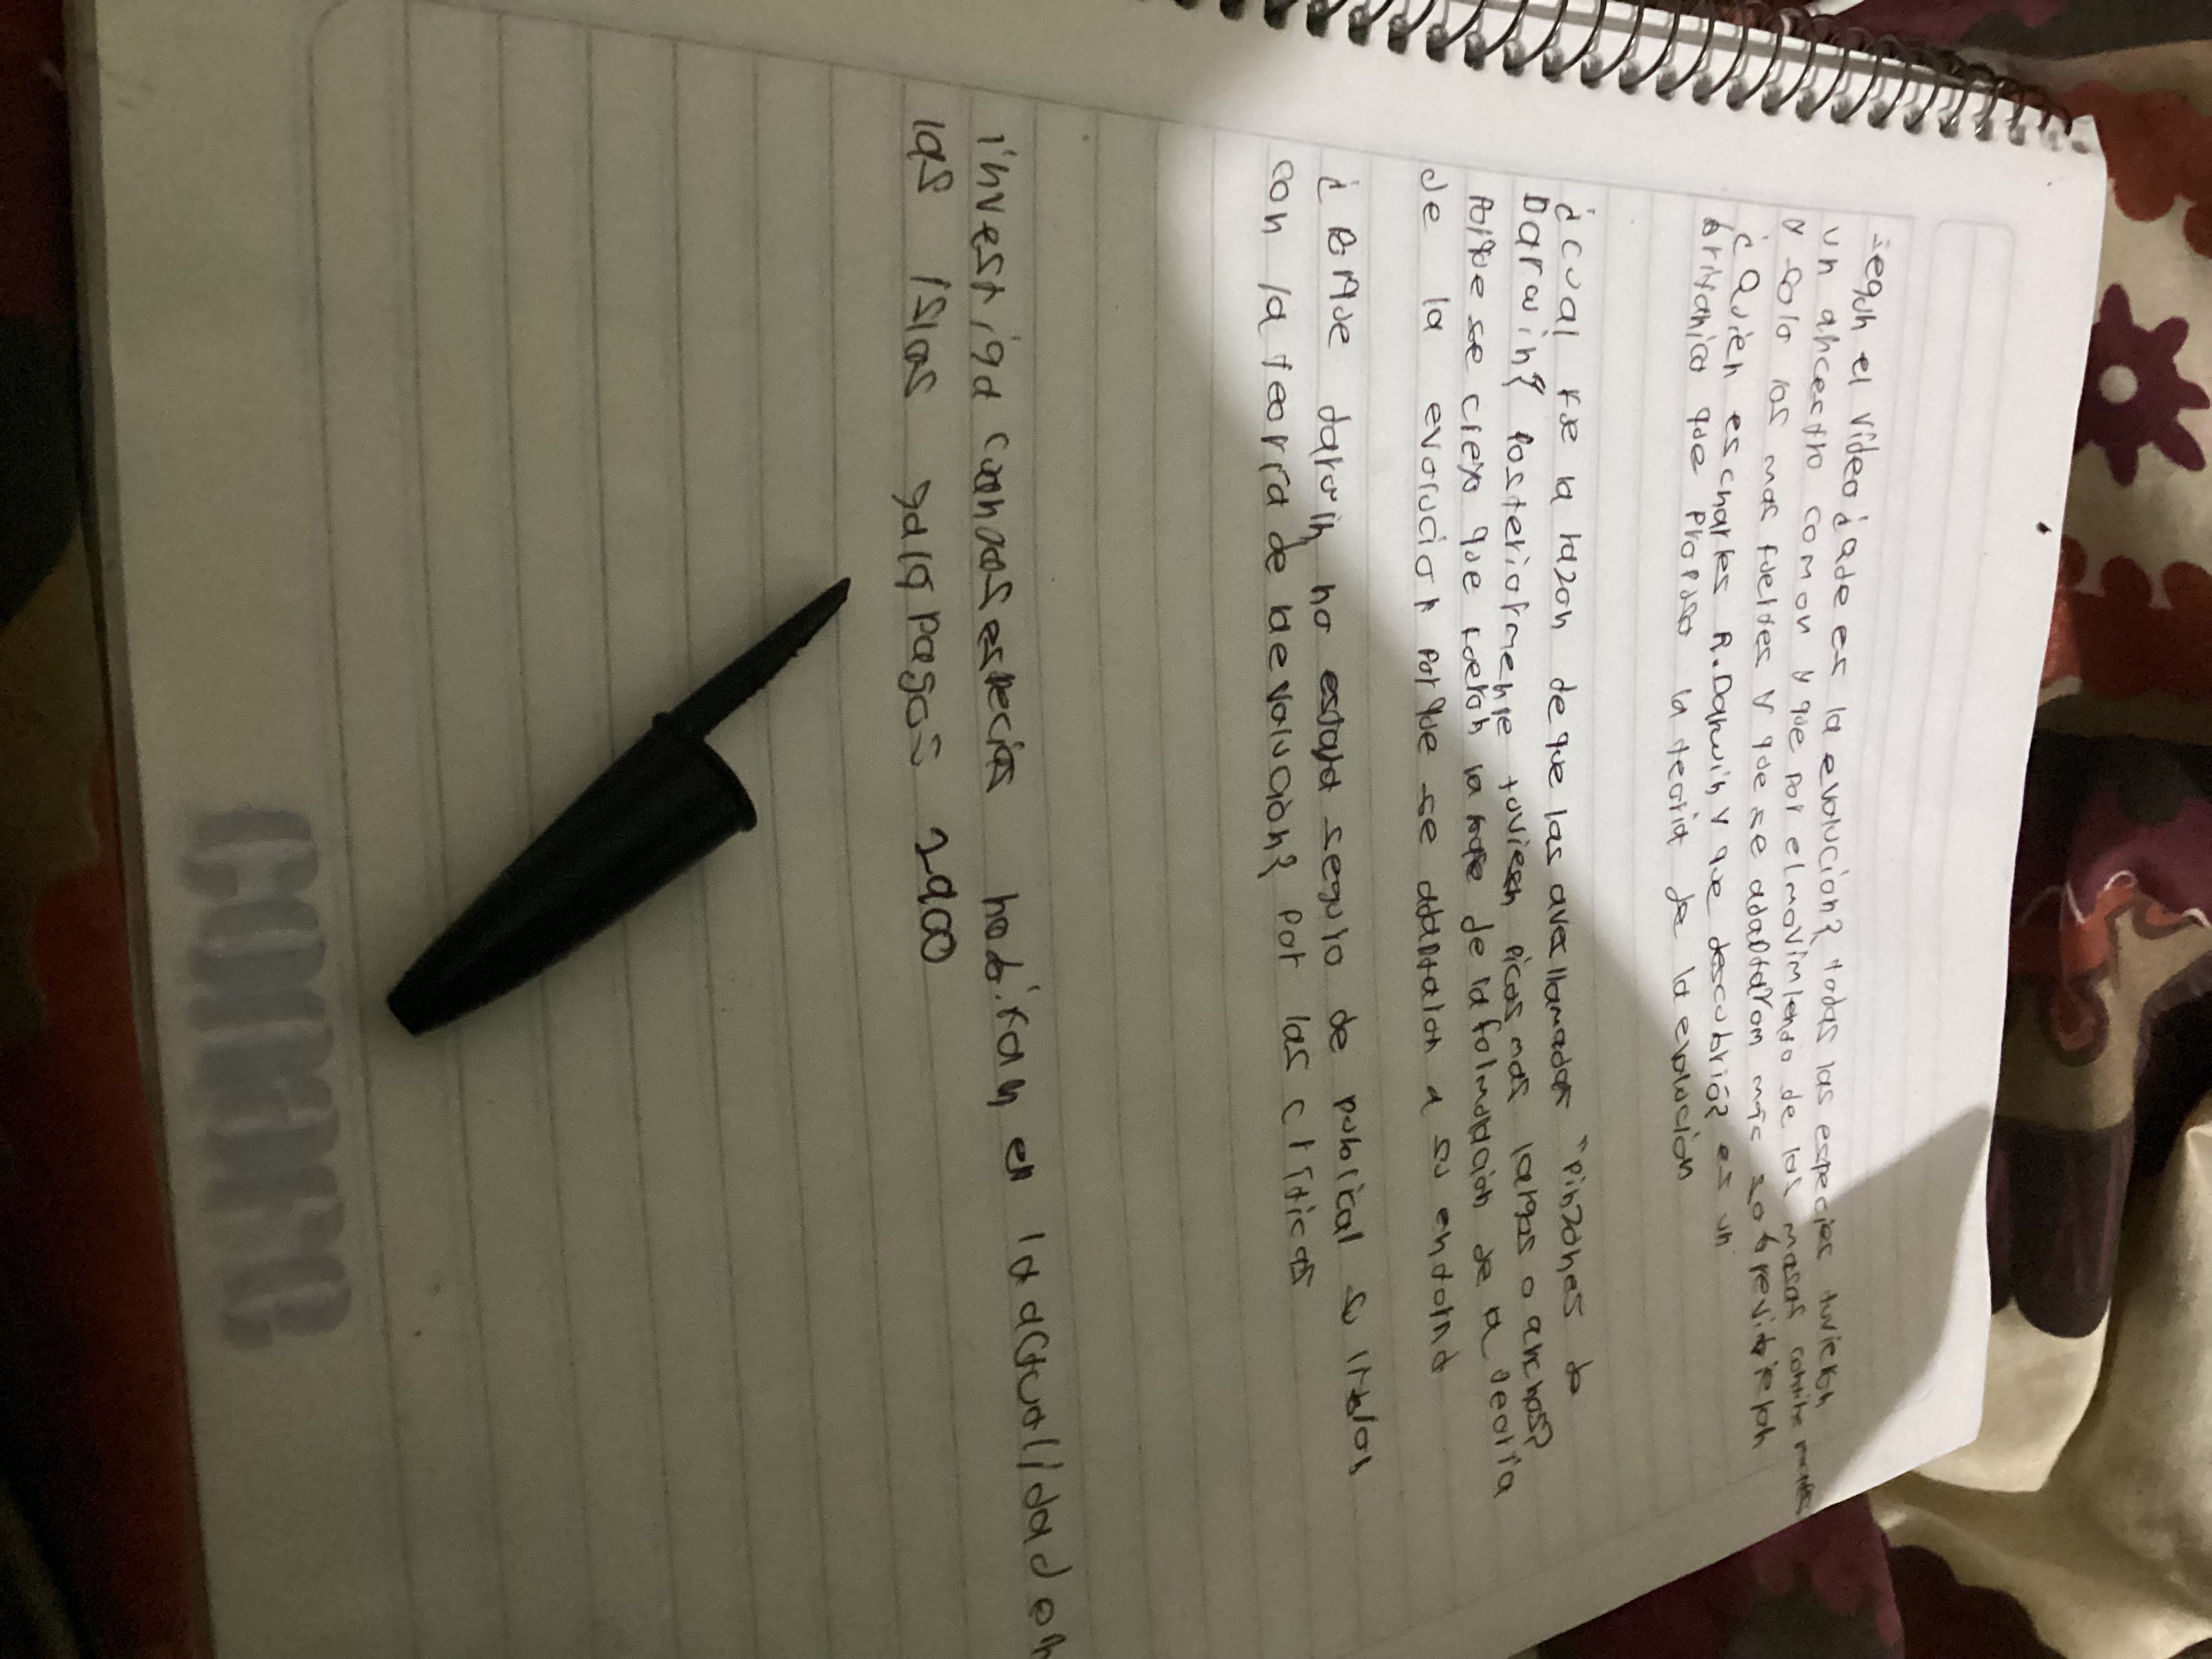 según el video ¿ que es la evolucion? todas las especies tuvieron
un ancestro comon y que por el movimiendo de las masas
y solo las mas fuertes y que se adaptarom más sobrevivieron
¿Quién es charles R. Darwin y que descubrió? es un
britanico que propuso la teoria de la evolución
¿cual fue la razon de que las aves llamadas "pinzones de
Darwin? Posteriormente tuviesen picos mas largos o anchos?
Porque se creyo que fueron la base de la formulación de la teoria
de la evolución porque se adaptaron a su entorno
¿ Porque darwin no estaba seguro de publicar su
con la teoría de la evolución? por las críticas
investiga cuantas especies habitan en la actualidad en
las islas galapagos 2900
conarte